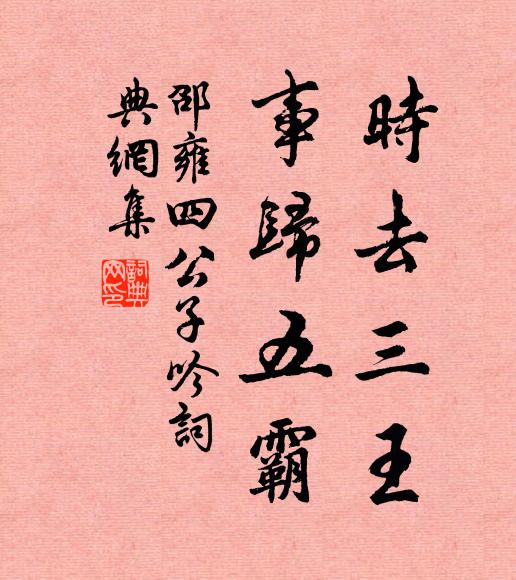 時去三王
事歸五霸
邵雍四公子吟詞
典網集
詞典
网印